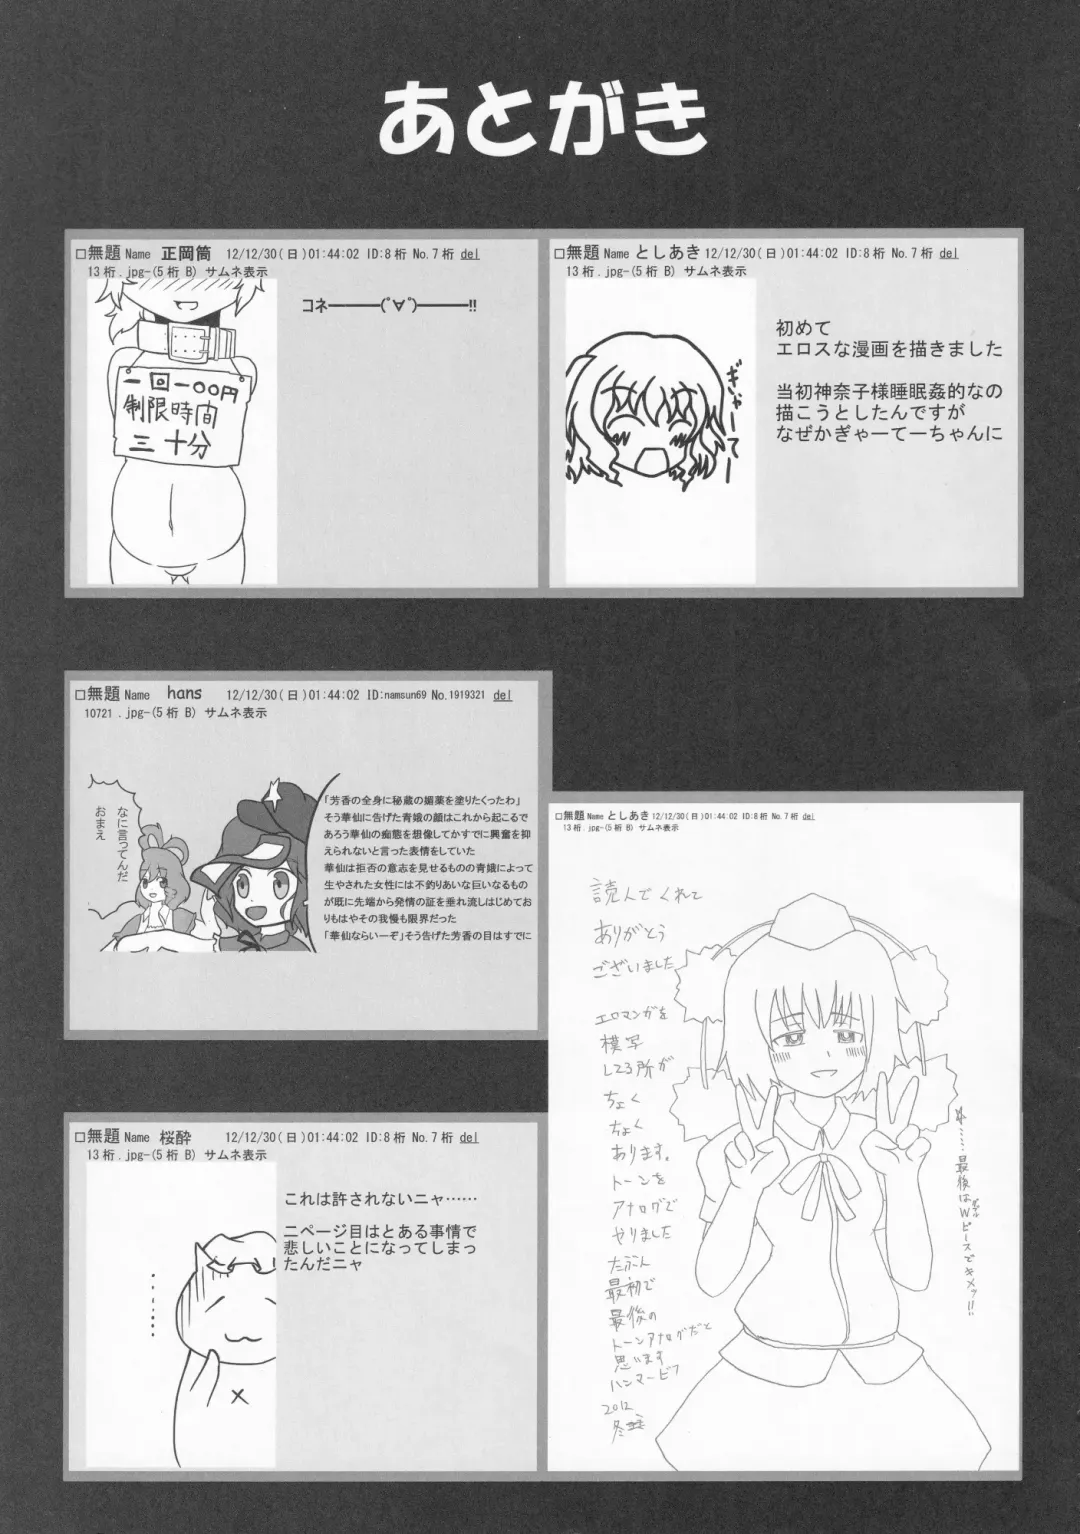 あとがき
□無題 Name 正岡筒 12/12/30(日)01:44:02 ID:8桁 No.7桁 del
13桁.jpg-(5桁 B) サムネ表示
コネ━━━━(ﾟ∀ﾟ)━━━━!!
一回一〇〇円
制限時間
三十分
□無題 Name としあき 12/12/30(日)01:44:02 ID:8桁 No.7桁 del
13桁.jpg-(5桁 B) サムネ表示
ぎゃーてー
初めて
エロスな漫画を描きました
当初神奈子様睡眠姦的なの
描こうとしたんですが
なぜかぎゃーてーちゃんに
□無題 Name hans 12/12/30(日)01:44:02 ID:namsun69 No.1919321 del
10721.jpg-(5桁 B) サムネ表示
なに言ってんだ
おまえ
「芳香の全身に秘蔵の媚薬を塗りたくったわ」
そう華仙に告げた青娥の顔はこれから起こるで
あろう華仙の痴態を想像してかすでに興奮を抑
えられないと言った表情をしていた
華仙は拒否の意志を見せるものの青娥によって
生やされた女性には不釣りあいな巨いなるもの
が既に先端から発情の証を垂れ流しはじめてお
りもはやその我慢も限界だった
「華仙ならいーぞ」そう告げた芳香の目はすでに
□無題 Name としあき 12/12/30(日)01:44:02 ID:8桁 No.7桁 del
13桁.jpg-(5桁 B) サムネ表示
読んでくれて
ありがとう
ございました
エロマンガを
模写
してる所が
ちょく
ちょく
あります。
トーンを
アナログで
やりました
たぶん
最初で
最後の
トーンアナログだと
思います
ハンマービフ
2012
冬
……最後はWピースでキメッ!!
ダブル
□無題 Name 桜酔 12/12/30(日)01:44:02 ID:8桁 No.7桁 del
13桁.jpg-(5桁 B) サムネ表示
これは許されないニャ……
二ページ目はとある事情で
悲しいことになってしまっ
たんだニャ